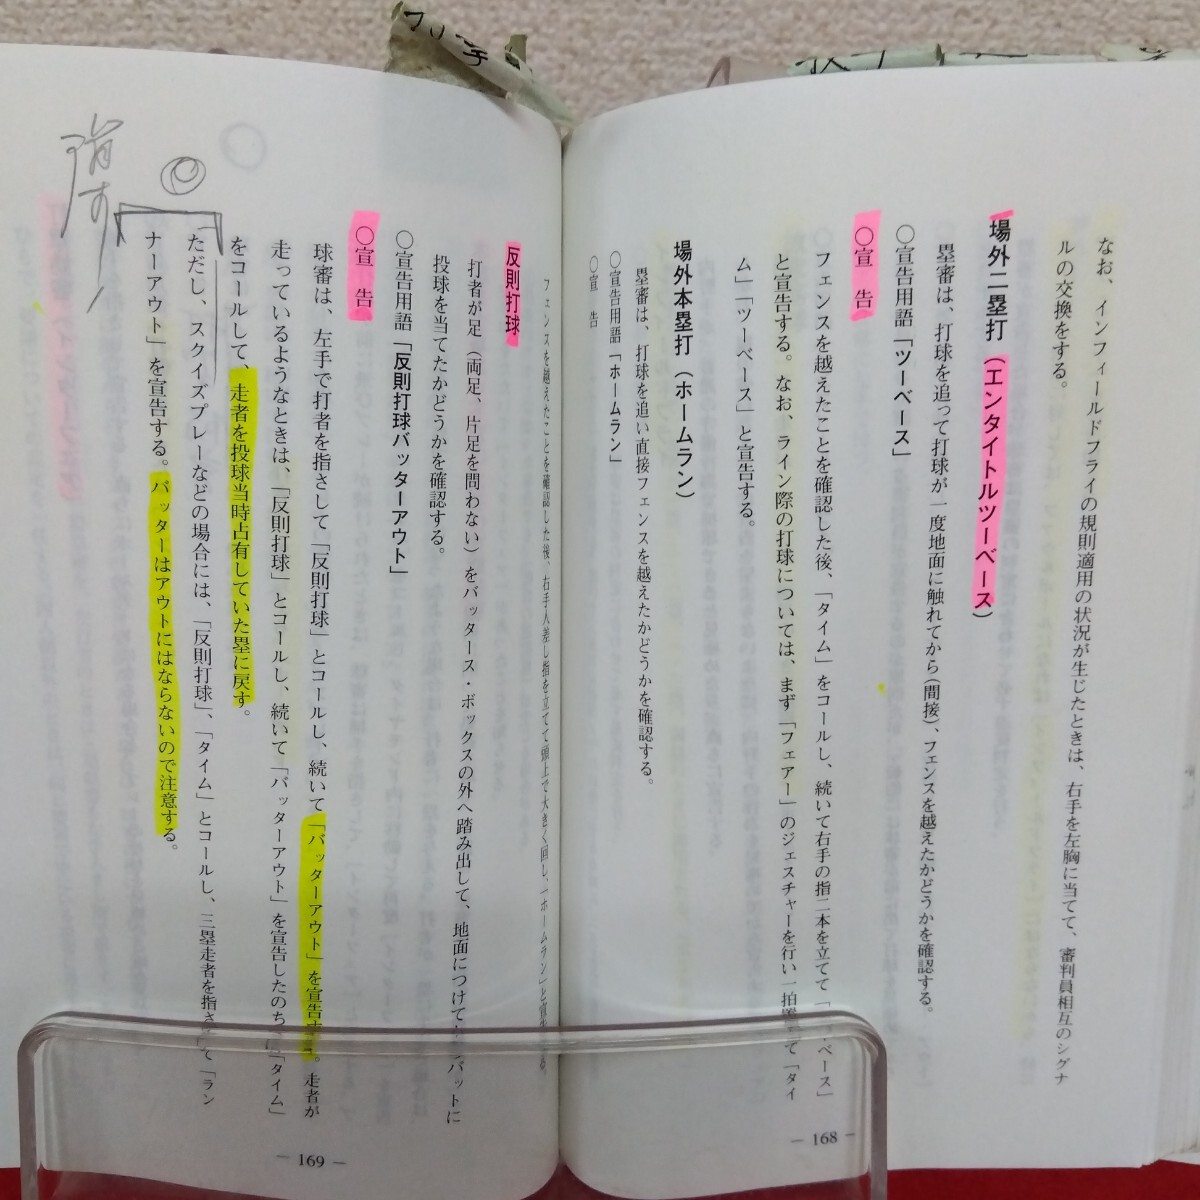 なお、インフィールドフライの規則適用の状況が生じたときは、右手を左胸に当てて、審判員相互のシグナ
ルの交換をする。
場外二塁打(エンタイトルツーベース)
塁審は、打球を追って打球が一度地面に触れてから(間接)、フェンスを越えたかどうかを確認する。
〇宣告用語「ツーベース」
〇宣 告
フェンスを越えたことを確認した後、「タイム」をコールし、続いて右手の指二本を立てて「 ベース」
と宣告する。なお、ライン際の打球については、まず「フェアー」のジェスチャーを行い一拍 て「タイ
ム」「ツーベース」と宣告する。
場外本塁打(ホームラン)
塁審は、打球を追い直接フェンスを越えたかどうかを確認する。
〇宣告用語「ホームラン」
〇宣 告
— 168 —
フェンスを越えたことを確認した後、右手人差し指を立てて頭上で大きく回し、「ホームラン」と宣 る。
反則打球
打者が足(両足、片足を問わない)をバッタース・ボックスの外へ踏み出して、地面につけて バットに
投球を当てたかどうかを確認する。
〇宣告用語「反則打球バッターアウト」
〇宣 告
球審は、左手で打者を指さして「反則打球」とコールし、続いて「バッターアウト」を宣告 。走者が
走っているようなときは、「反則打球」とコールし、続いて「バッターアウト」を宣告したのち 「タイム」
をコールして、走者を投球当時占有していた塁に戻す。
ただし、スクイズプレーなどの場合には、「反則打球」、「タイム」とコールし、三塁走者を指さ て「ラン
ナーアウト」を宣告する。バッターはアウトにはならないので注意する。
消す
— 169 —